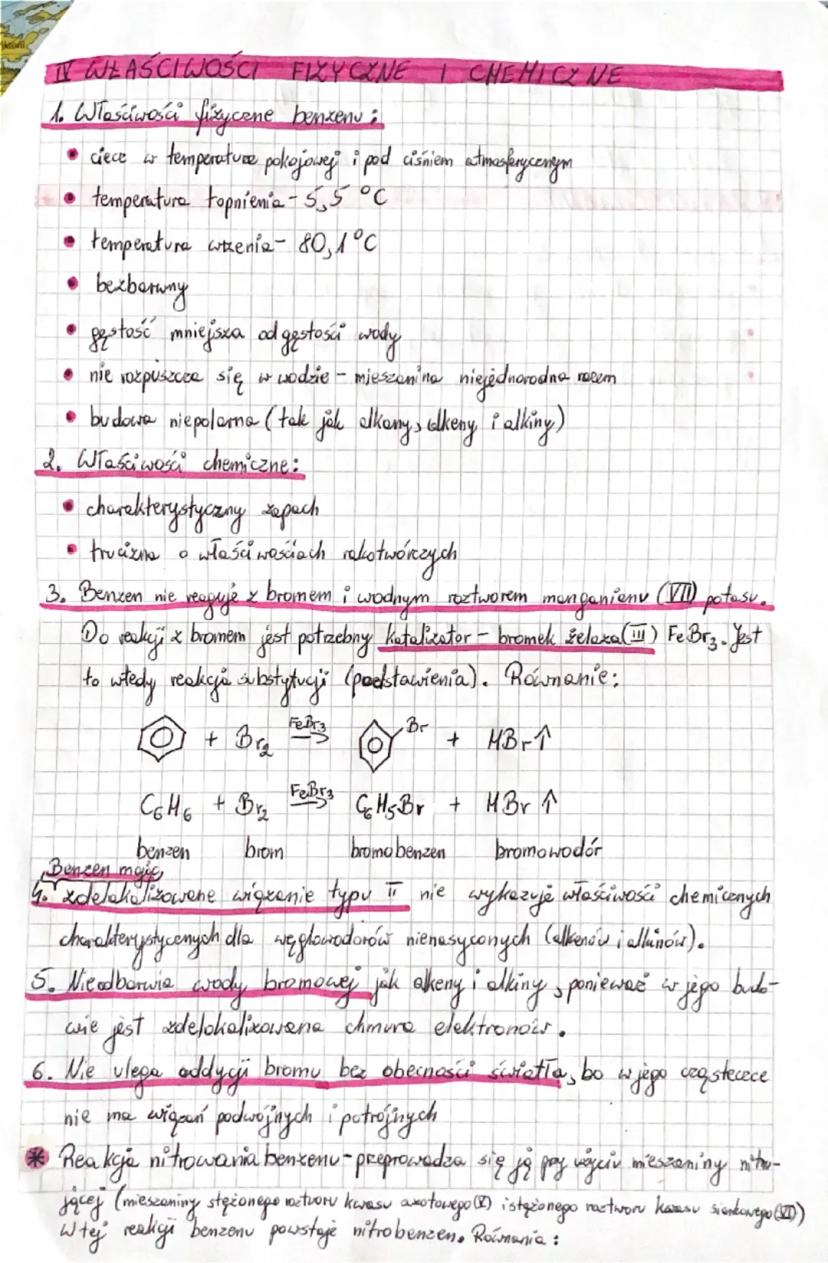 IV WŁAŚCIWOŚCI FIZYCZNE I CHEMICZNE
1. Właściwości fizyczne benzenu:
• ciecz w temperaturze pokojowej i pod ciśniem atmosferycznym
• temperatura topnienia - 5,5 °C
• temperatura wrzenia - 80,1°C
• bezbarwny
• gęstość mniejsza od gęstości wody
• nie rozpuszcza się w wodzie - mieszanina niejednorodna
• budowa niepolarna (tak jak alkany, alkeny i alkiny)
2. Właściwości chemiczne:
• charakterystyczny zapach
• trucizna o właściwościach rakotwórczych
3. Benzen nie reaguje z bromem i wodnym roztworem manganianu (VII) potasu.
Do reakcji z bromem jest potrzebny katalizator - bromek żelaza (III) FeBr3. Jest
to wtedy reakcja substytucji (podstawienia). Równanie:
+ Br2 FeBr3 → Br + HBr↑
C6H6 + Br2 FeBr3 → C6H5Br + HBr ↑
benzen brom bromobenzen bromowodór
Benzen mając
4. zdelokalizowane wiązanie typu π nie wykazuje właściwości chemicznych
charakterystycznych dla węglowodorów nienasyconych (alkenów i alkinów).
5. Nie odbarwia wody bromowej jak alkeny i alkiny, ponieważ w jego budo-
wie jest zdelokalizowana chmura elektronów.
6. Nie ulega addycji bromu bez obecności światła, bo w jego cząsteczce
nie ma wiązań podwójnych i potrójnych
* Reakcja nitrowania benzenu - przeprowadza się ją przy użyciu mieszaniny nitru-
jącej (mieszaniny stężonego roztworu kwasu azotowego (V) i stężonego roztworu kwasu siarkowego (VI))
W tej reakcji benzenu powstaje nitrobenzen. Równania: